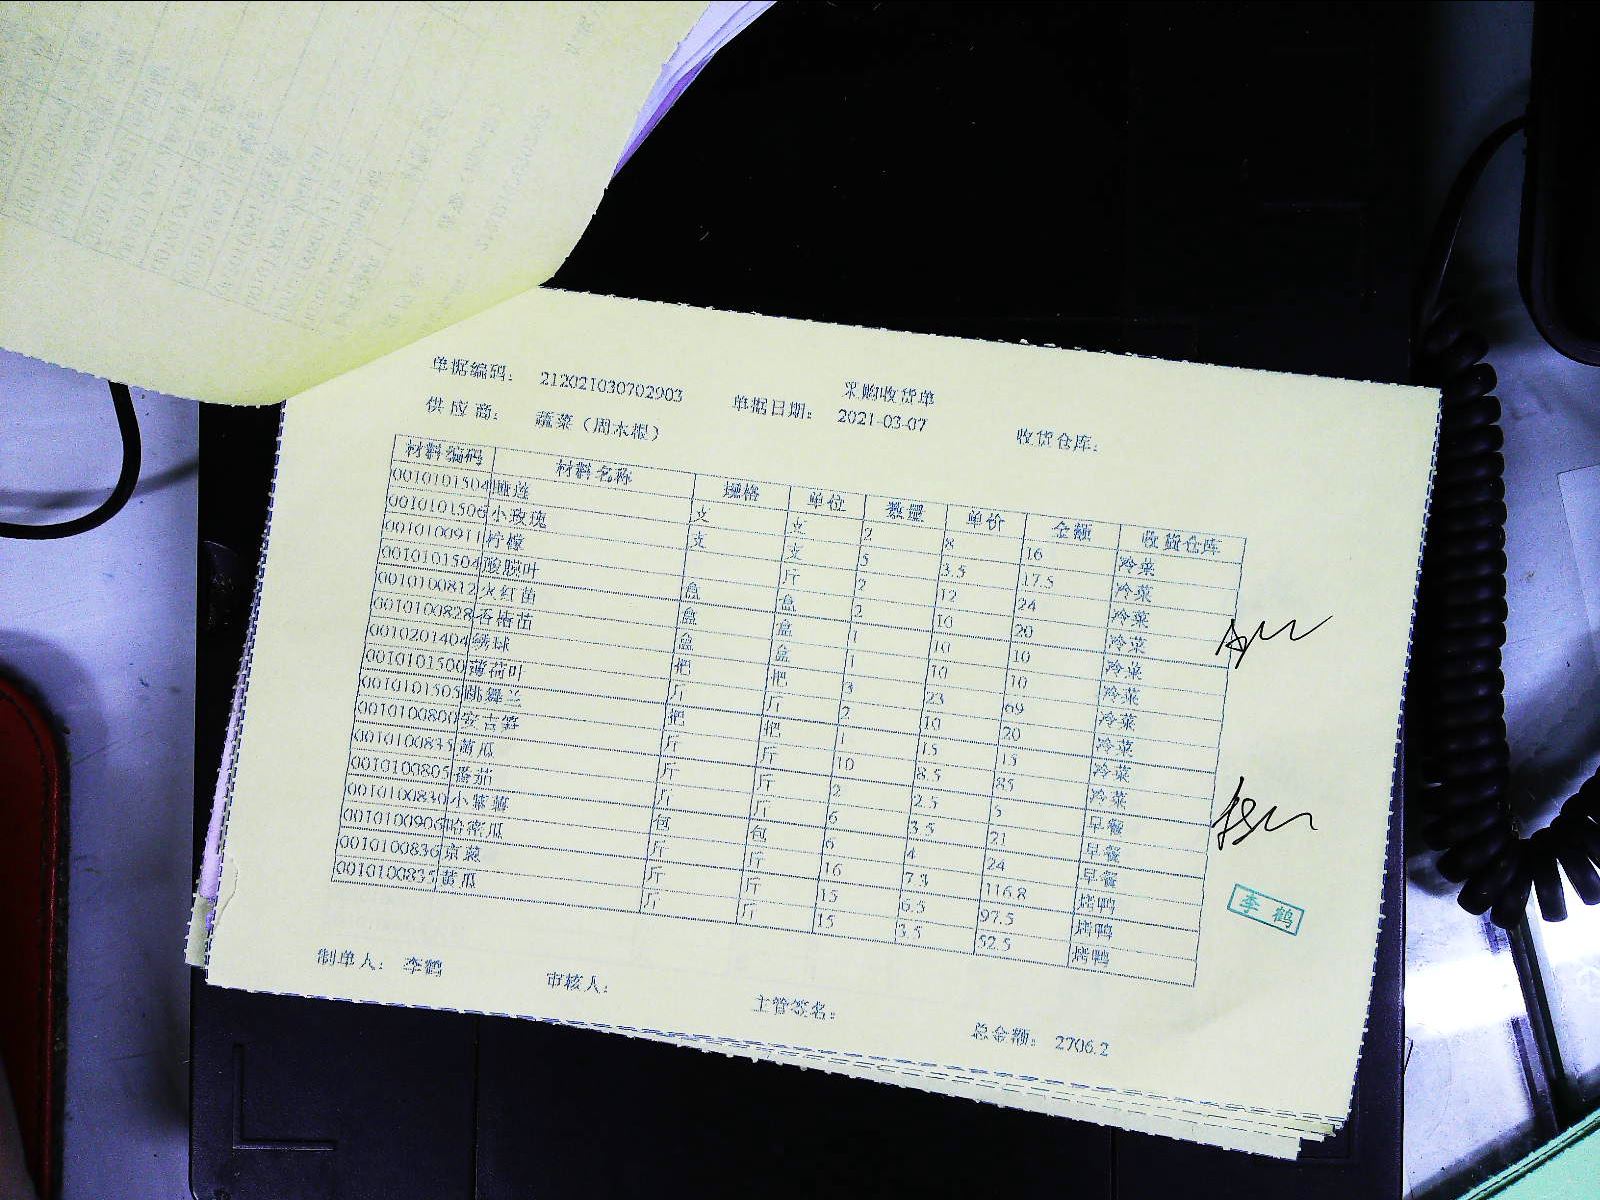 采购收货单
单据编码： 212021030702903 单据日期： 2021-03-07 收货仓库：
供 应 商： 蔬菜（周木根）
材料编码 材料名称 规格 单位 数量 单价 金额 收货仓库
0010101504 睡莲 支 支 2 8 16 冷菜
0010101506 小玫瑰 支 支 5 3.5 17.5 冷菜
0010100911 柠檬 斤 2 12 24 冷菜
0010101504 酸膜叶 盒 盒 2 10 20 冷菜
0010100812 火红苗 盒 盒 1 10 10 冷菜
0010100828 香椿苗 盒 盒 1 10 10 冷菜
0010201404 绣球 把 把 3 23 69 冷菜
0010101500 薄荷叶 斤 斤 2 10 20 冷菜
0010101505 跳舞兰 把 把 1 15 15 冷菜
0010100800 安吉笋 斤 斤 10 8.5 85 冷菜
0010100835 黄瓜 斤 斤 2 2.5 5 早餐
0010100805 番茄 斤 斤 6 3.5 21 早餐
0010100830 小葱 包 包 6 4 24 早餐
0010100906 哈密瓜 斤 斤 16 7.3 116.8 烤鸭
0010100836 京葱 斤 斤 15 6.5 97.5 烤鸭
0010100835 黄瓜 斤 斤 15 3.5 52.5 烤鸭
李鹤
制单人： 李鹤 审核人： 主管签名： 总金额： 2706.2